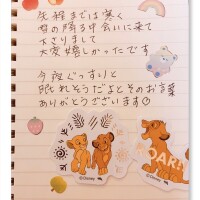 先程までは寒く
雪の降る中会いに来て
下さりまして
大変嬉しかったです
今夜ぐっすりと
眠れそうだよとそのお言葉
ありがとうございます☺
ROAR!
©Disney
©Disney